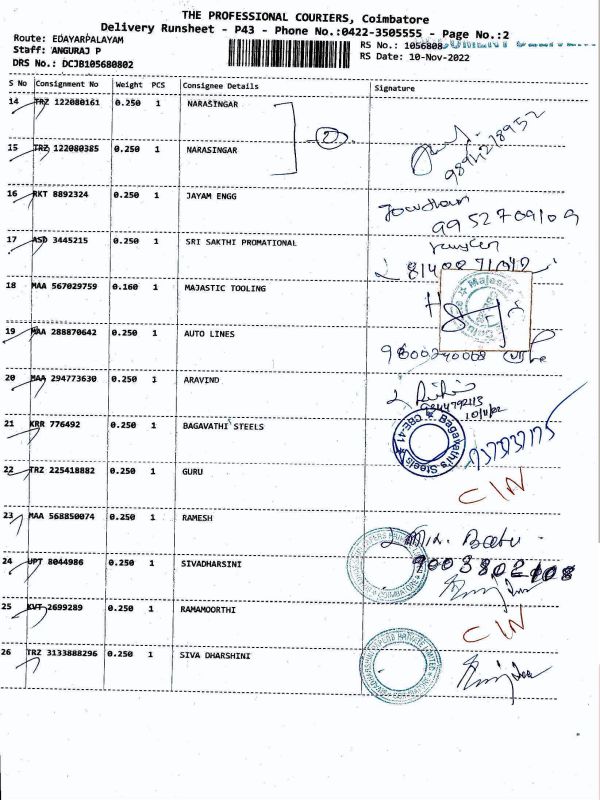 THE PROFESSIONAL COURIERS, Coimbatore
Delivery Runsheet - P43 - Phone No.:0422-3505555 - Page No.:2
Route: EDAYARPALAYAM
Staff: ANGURAJ P
DRS No.: DCJB105680802
RS No.: 1056808
RS Date: 10-Nov-2022
S No Consignment No Weight PCS Consignee Details Signature
14 TRZ 122080161 0.250 1 NARASINGAR
15 TRZ 122080385 0.250 1 NARASINGAR
16 RKT 8892324 0.250 1 JAYAM ENGG
9952709109
17 ASD 3445215 0.250 1 SRI SAKTHI PROMOTIONAL
18 MAA 567029759 0.160 1 MAJASTIC TOOLING
19 MAA 288870642 0.250 1 AUTO LINES
20 MAA 294773630 0.250 1 ARAVIND
10/11/22
21 KRR 776492 0.250 1 BAGAVATHI STEELS
Bagavathi's Steels CBE-41
22 TRZ 225418882 0.250 1 GURU C/N
23 MAA 568850074 0.250 1 RAMESH
24 UPT 8044986 0.250 1 SIVADHARSINI
25 KVT 2699289 0.250 1 RAMAMOORTHI C/N
26 TRZ 3133888296 0.250 1 SIVA DHARSHINI